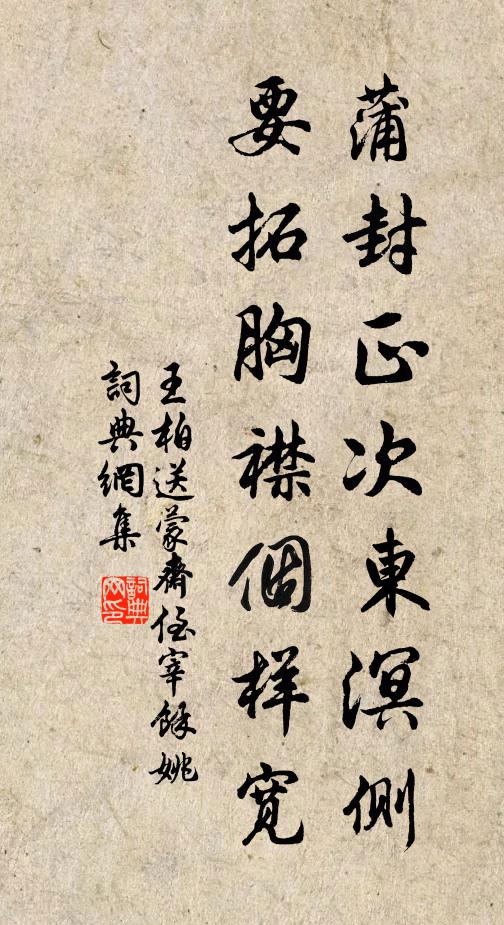 蒲封正次東溟側
要拓胸襟個样寬
王柏送蒙齋侄宰餘姚
詞典網集
詞典網印